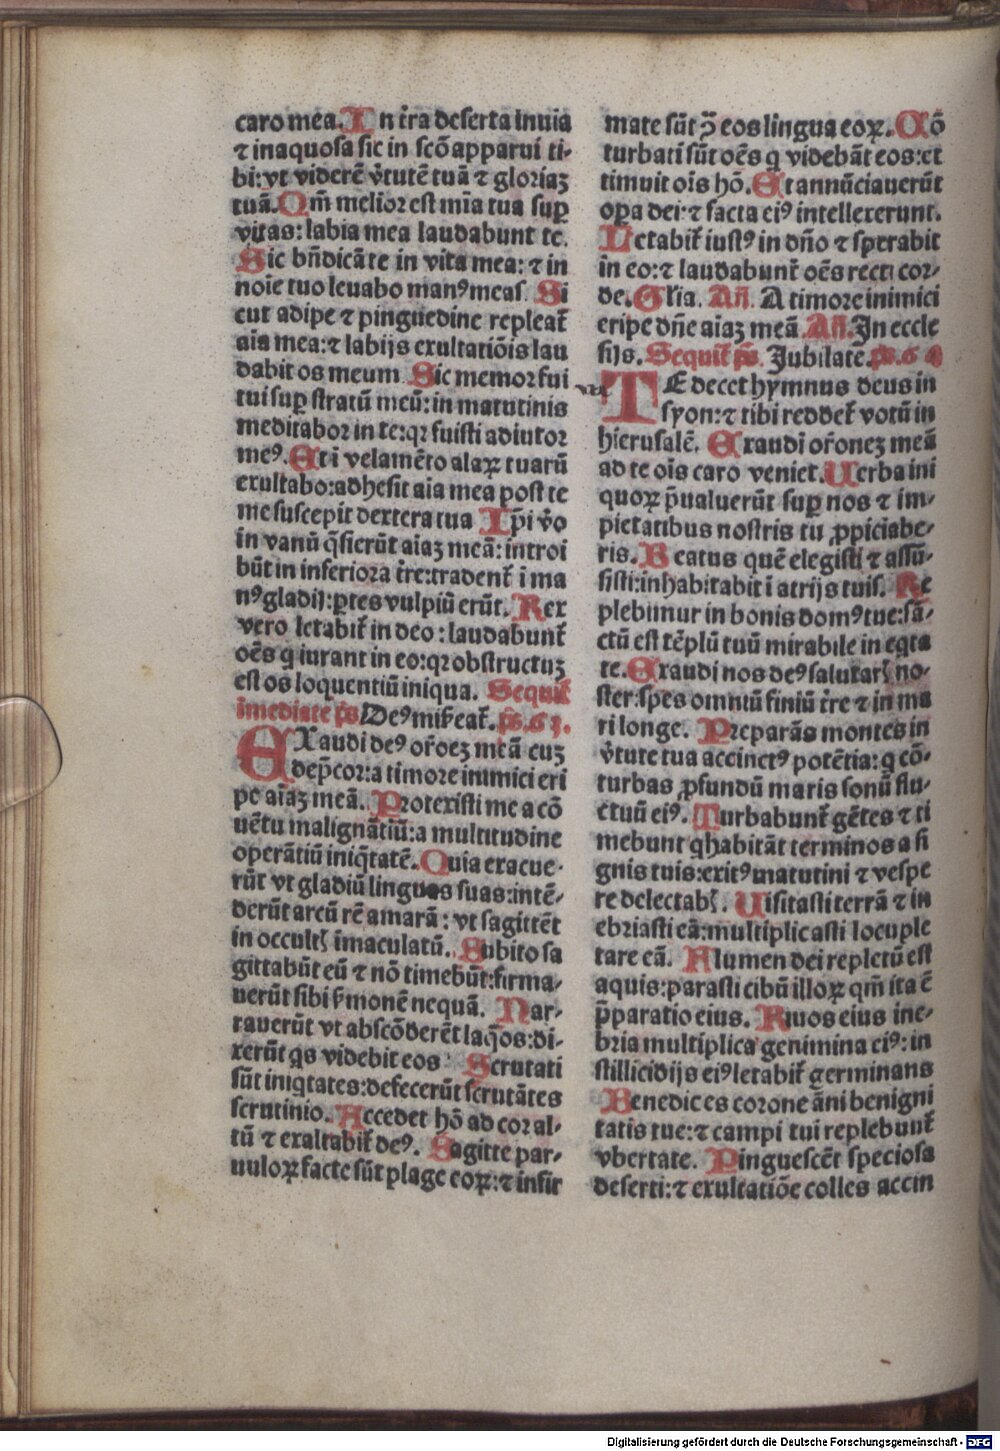 caro mea. In t̄ra deserta inuia
⁊ inaquosa sic in scō apparui ti-
bi: vt viderē v̄tutē tuā ⁊ gloriaꝫ
tuā. Qm̄ melior est mīa tua suꝑ
vitas: labia mea laudabunt te.
Sic bn̄dicā te in vita mea: ⁊ in
noīe tuo leuabo manꝰ meas. Si
cut adipe ⁊ pinguedine repleat᷑
aīa mea: ⁊ labijs exultatiōis lau
dabit os meum. Sic memor fui
tui suꝑ stratū meū: in matutinis
meditabor in te: qꝛ fuisti adiutor
meꝰ. Et ī velamēto alaꝝ tuarū
exultabo: adhesit aīa mea post te
me suscepit dextera tua. Ip̄i v̄o
in vanū q̄sierūt aīaꝫ meā: introi
būt in inferiora t̄re: tradent᷑ ī ma
nꝰ gladij: ꝑtes vulpiū erūt. Rex
vero letabit᷑ in deo: laudabunt᷑
oēs q̄ iurant in eo: qꝛ obstructuꝫ
est os loquentiū iniqua. Sequit᷑
īmediate p̄s. Deꝰ mis̄reat᷑. p̄s. 63.
EXaudi deꝰ or̄oeꝫ meā cuꝫ
dep̄cor: a timore inimici eri
pe aīaꝫ meā. Protexisti me a cō
uētu malignātiū: a multitudine
operātiū iniq̄tatē. Quia exacue-
rūt vt gladiū linguas suas: intē-
derūt arcū rē amarā: vt sagittēt
in occultꝭ īmaculatū. Subito sa
gittabūt eū ⁊ nō timebūt: firma-
uerūt sibi s̄monē nequā. Nar-
rauerūt vt abscōderēt laq̄os: di-
xerūt q̄s videbit eos. Scrutati
sūt iniq̄tates: defecerūt scrutātes
scrutinio. Accedet hō ad cor al-
tū ⁊ exaltabit᷑ deꝰ. Sagitte par-
uuloꝝ facte sūt plage eoꝝ: ⁊ infir
mate sūt ↄ̄ eos lingua eoꝝ. Cō
turbati sūt oēs q̄ videbāt eos: et
timuit oīs hō. Et annūciauerūt
oꝑa dei: ⁊ facta eiꝰ intellexerunt.
Letabit᷑ iustꝰ in dn̄o ⁊ sperabit
in eo: ⁊ laudabunt᷑ oēs recti cor-
de. Glīa. Añ. A timore inimici
eripe dn̄e aīaꝫ meā. Añ. In eccle
sijs. Sequit᷑ p̄s. Jubilate. p̄s. 64
TE decet hymnus deus in
syon: ⁊ tibi reddet᷑ votū in
hierusalē. Exaudi or̄oneꝫ meā
ad te oīs caro veniet. Uerba ini
quoꝝ p̄ualuerūt suꝑ nos ⁊ im-
pietatibus nostris tu ꝓpiciabe-
ris. Beatus quē elegisti ⁊ assū-
sisti: inhabitabit ī atrijs tuis. Re
plebimur in bonis domꝰ tue: sā-
ctū est tēplū tuū mirabile in eqta
te. Exaudi nos deꝰ salutarꝭ no-
ster: spes omniū finiū t̄re ⁊ in ma
ri longe. Preparās montes in
v̄tute tua accinctꝰ potētia: q̄ cō-
turbas ꝓfundū maris sonū flu-
ctuū eiꝰ. Turbabunt᷑ gētes ⁊ ti
mebunt q̄ habitāt terminos a si
gnis tuis: exitꝰ matutini ⁊ vespe
re delectabꝭ. Uisitasti terrā ⁊ in
ebriasti eā: multiplicasti locuple
tare eā. Flumen dei repletū est
aquis: parasti cibū illoꝝ qm̄ ita ē
p̄paratio eius. Riuos eius ine-
bria multiplica genimina eiꝰ: in
stillicidijs eiꝰ letabit᷑ germinans
Benedices corone āni benigni
tatis tue: ⁊ campi tui replebunt᷑
vbertate. Pinguescēt speciosa
deserti: ⁊ exultatiōe colles accin
Digitalisierung gefördert durch die Deutsche Forschungsgemeinschaft - DFG